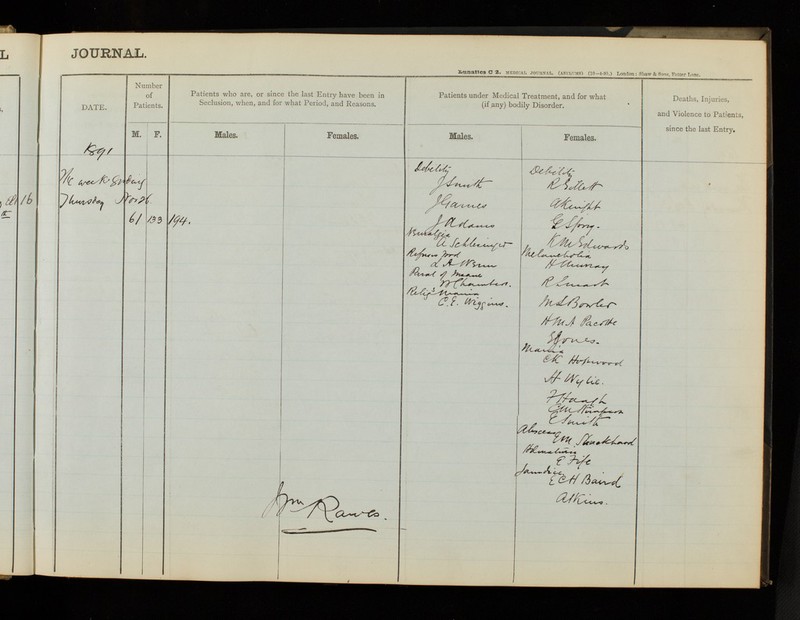 L
JOURNAL.
Lunatics C 2. MEDICAL JOURNAL. (ASYLUMS) London: Shaw & Sons, Fetter Lane.
DATE.
Number
of
Patients.
M. F.
Patients who are, or since the last Entry have been in
Seclusion, when, and for what Period, and Reasons.
Males.
Females.
Patients under Medical Treatment, and for what
(if any) bodily Disorder.
Males.
Females.
Deaths, Injuries,
and Violence to Patients,
since the last Entry.
1891
The week Ending
Thursday Nov 26
16
61 133 194.
Debility
J Smith
J Garnes
J Adams
Neuralgia
A Schlesinger
Refuses food
Paral of Insane
W Chambers.
Relig. Mania
C. E. Wiggins.
Debility
R Gillett
A Knight
E Spong.
K M Edwards
Melancholia
H Murray
R Smart
M L Bowler
H M A
E Jones.
Mania
E K Hopwood
H Wylie.
F Haugh
E M Thompson
E Smith
Abscess
E M
Rheumatism
E Fife
Jaundice
E C H Baird
Atkins.
Wm Rawes.